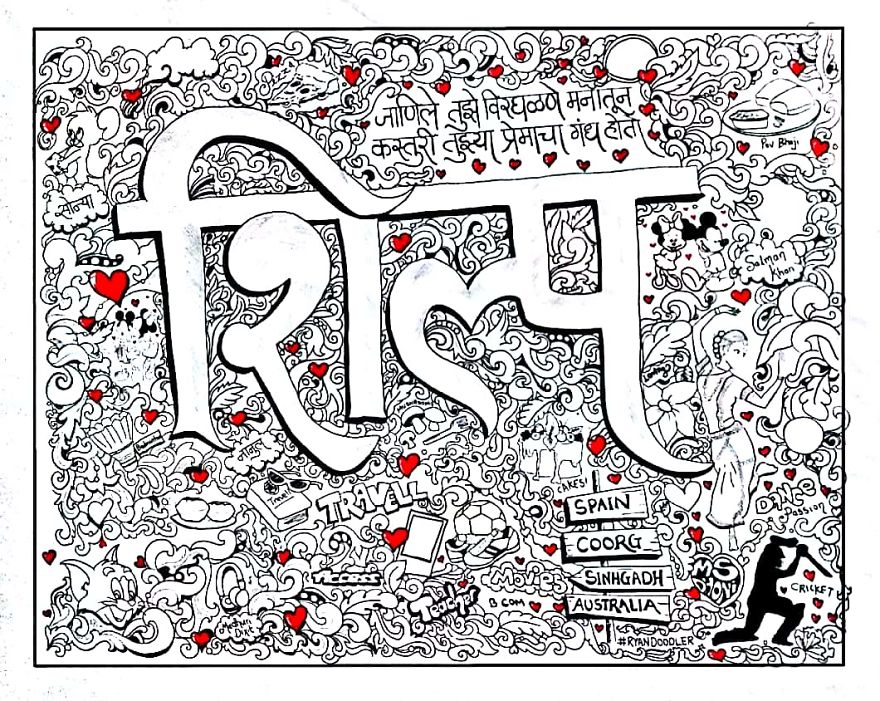 जाणिले तुझे विरघळणे मनातून
कस्तुरी तुझ्या प्रेमाचा गंध होता
Pav Bhaji
Salman
Khan
शिल्प
TRAVELL
CAKES!
SPAIN
COORG
SINHGADH
AUSTRALIA
#RYANDOODLER
DANCE
Passion
MS
CRICKET
Access
Movie
B COM